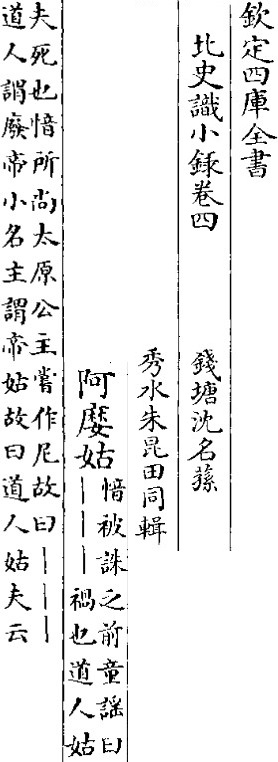 欽定四庫全書
北史識小録卷四
錢塘沈名蓀
秀水朱昆田同輯
阿麼姑
愔被誅之前童謡曰
｜｜｜禍也道人姑
夫死也愔所尚太原公主嘗作尼故曰｜｜｜
道人謂廢帝小名主謂帝姑故曰道人姑夫云